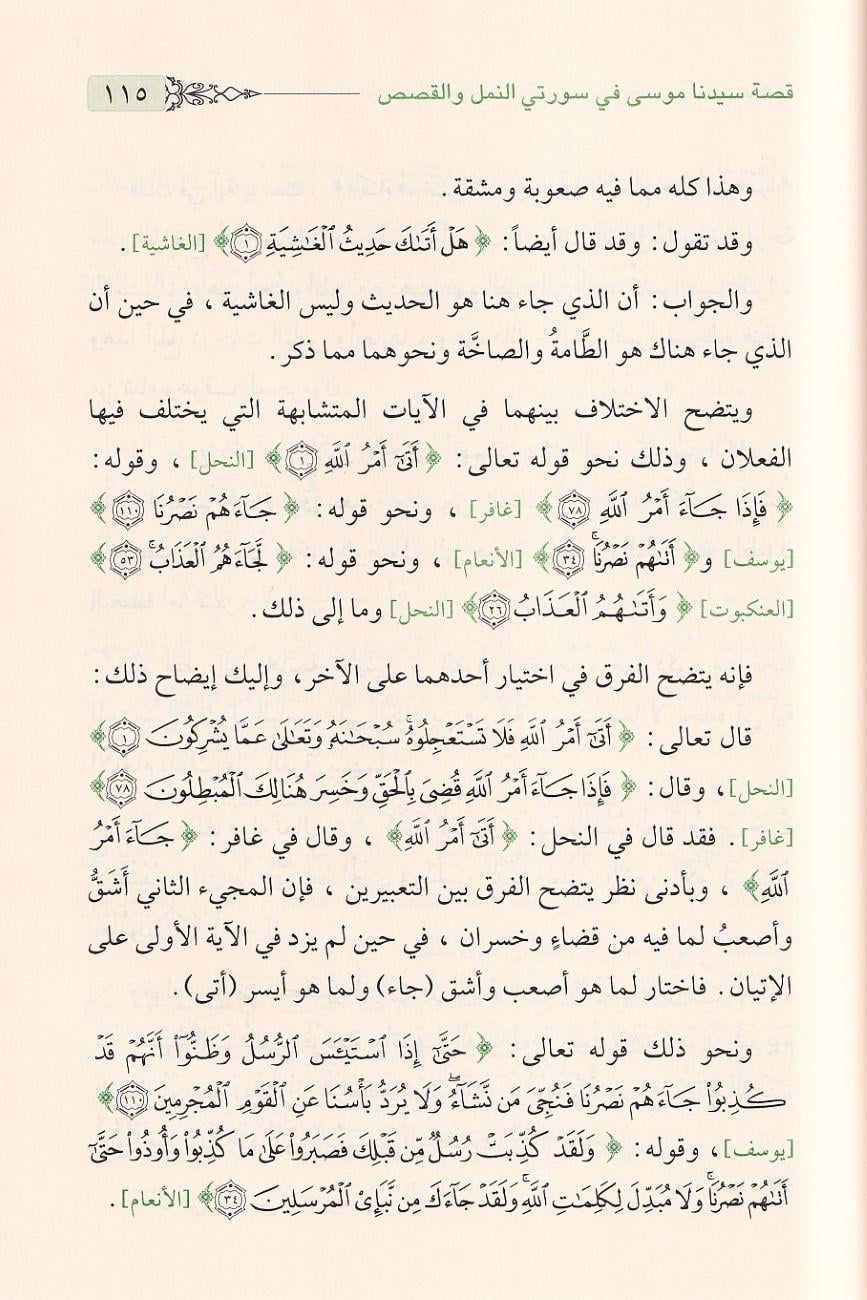 قصة سيدنا موسى في سورتي النمل والقصص ١١٥
وهذا كله مما فيه صعوبة ومشقة .
وقد تقول : وقد قال أيضاً : ﴿ هَلْ أَتَىٰكَ حَدِيثُ ٱلْغَـٰشِيَةِ ١ ﴾ [الغاشية] .
والجواب : أن الذي جاء هنا هو الحديث وليس الغاشية ، في حين أن
الذي جاء هناك هو الطَّامةُ والصاخَّة ونحوهما مما ذكر .
ويتضح الاختلاف بينهما في الآيات المتشابهة التي يختلف فيها
الفعلان ، وذلك نحو قوله تعالى : ﴿ أَتَىٰٓ أَمْرُ ٱللَّهِ ١ ﴾ [النحل] ، وقوله :
﴿ فَإِذَا جَـآءَ أَمْرُ ٱللَّهِ ٧٨ ﴾ [غافر] ، ونحو قوله : ﴿ جَـآءَهُمْ نَصْرُنَا ١١٠ ﴾
[يوسف] و﴿ أَتَىٰهُمْ نَصْرُنَاۚ ٣٤ ﴾ [الأنعام] ، ونحو قوله : ﴿ لَّجَآءَهُمُ ٱلْعَذَابُۚ ٥٣ ﴾
[العنكبوت] ﴿ وَأَتَىٰهُمُ ٱلْعَـذَابُ ٢٦ ﴾ [النحل] وما إلى ذلك .
فإنه يتضح الفرق في اختيار أحدهما على الآخر، وإليك إيضاح ذلك :
قال تعالى : ﴿ أَتَىٰٓ أَمْرُ ٱللَّهِ فَلَا تَسْتَعْجِلُوهُۚ سُبْحَـٰنَهُۥ وَتَعَـٰلَىٰ عَمَّا يُشْرِكُونَ ١ ﴾
[النحل] ، وقال : ﴿ فَإِذَا جَـآءَ أَمْرُ ٱللَّهِ قُضِىَ بِٱلْحَقِّ وَخَسِرَ هُنَالِكَ ٱلْمُبْطِلُونَ ٧٨ ﴾
[غافر] . فقد قال في النحل : ﴿ أَتَىٰٓ أَمْرُ ٱللَّهِ ﴾ ، وقال في غافر : ﴿ جَـآءَ أَمْرُ
ٱللَّهِ ﴾ ، وبأدنى نظر يتضح الفرق بين التعبيرين ، فإن المجيء الثاني أَشَقُّ
وأصعبُ لما فيه من قضاءٍ وخسران ، في حين لم يزد في الآية الأولى على
الإتيان . فاختار لما هو أصعب وأشق (جاء) ولما هو أيسر (أتى).
ونحو ذلك قوله تعالى : ﴿ حَتَّىٰٓ إِذَا ٱسْتَيْـَٔسَ ٱلرُّسُلُ وَظَنُّوٓا۟ أَنَّهُمْ قَدْ
كُذِبُوا۟ جَآءَهُمْ نَصْرُنَا فَنُجِّىَ مَن نَّشَآءُۖ وَلَا يُرَدُّ بَأْسُنَا عَنِ ٱلْقَوْمِ ٱلْمُجْرِمِينَ ١١٠ ﴾
[يوسف] ، وقوله : ﴿ وَلَقَدْ كُذِّبَتْ رُسُلٌ مِّن قَبْلِكَ فَصَبَرُوا۟ عَلَىٰ مَا كُذِّبُوا۟ وَأُوذُوا۟ حَتَّىٰٓ
أَتَىٰهُمْ نَصْرُنَاۚ وَلَا مُبَدِّلَ لِكَلِمَـٰتِ ٱللَّهِۚ وَلَقَدْ جَآءَكَ مِن نَّبَإِى۟ ٱلْمُرْسَلِينَ ٣٤ ﴾ [الأنعام] .